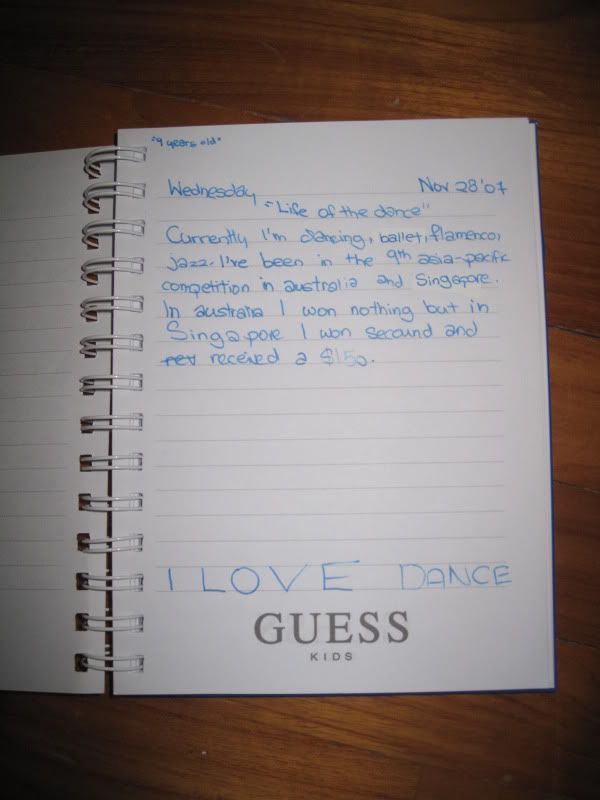 "9 years old"
Wednesday Nov 28'07
-"Life of the dance"
Currently I'm dancing, ballet, flamenco,
jazz. I've been in the 9th asia-pacific
competition in australia and Singapore.
In australia I won nothing but in
Singapore I won secound and
rev received a $150.
I LOVE DANCE
GUESS
KIDS